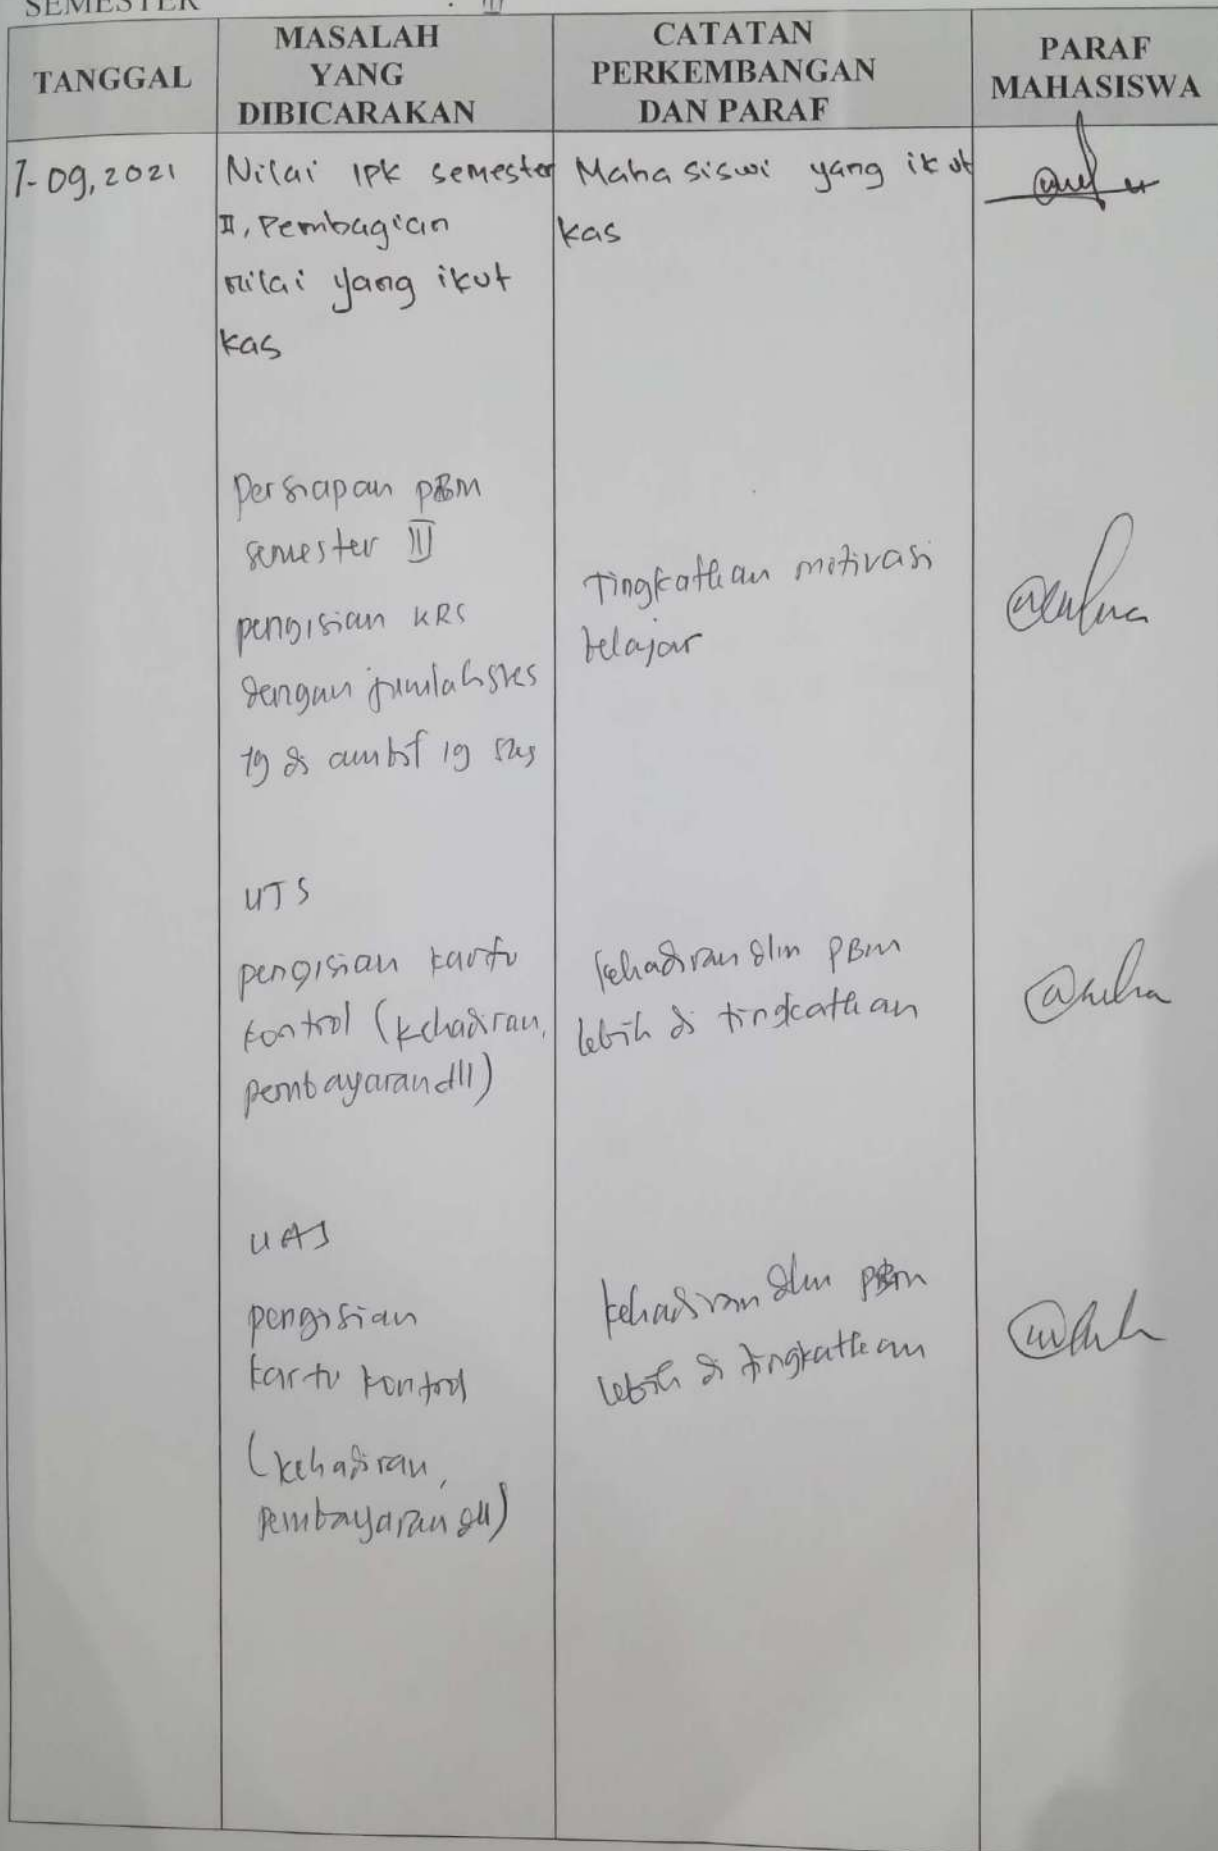 SEMESTER : III
TANGGAL
MASALAH
YANG
DIBICARAKAN
CATATAN
PERKEMBANGAN
DAN PARAF
PARAF
MAHASISWA
7-09,2021
Nilai IPK semester
II, Pembagian
nilai yang ikut
kas
Mahasiswi yang ikut
kas
Persiapan PBM
semester III
pengisian KRS
dengan jumlah sks
yg di ambil 19 sks
Tingkatkan motivasi
belajar
UTS
pengisian kartu
kontrol (kehadiran,
pembayaran dll)
kehadiran dlm PBM
lebih di tingkatkan
UAS
pengisian
kartu kontrol
(kehadiran,
pembayaran dll)
kehadiran dlm PBM
lebih di tingkatkan